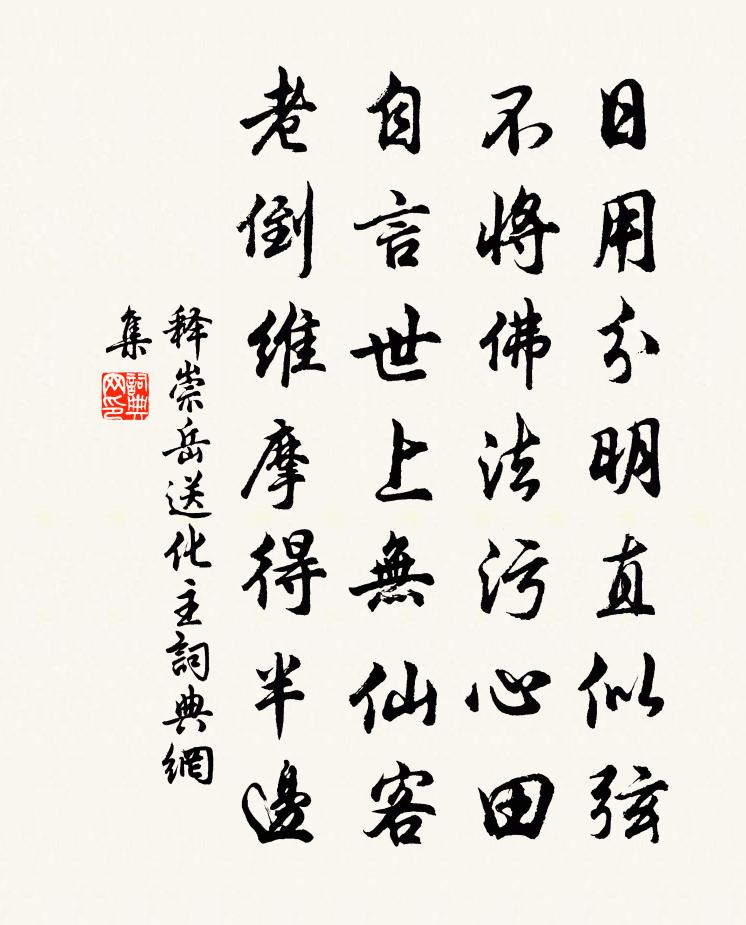 日用分明直似弦
不將佛法污心田
自言世上無仙客
老倒維摩得半邊
释崇岳送化主詞典網
集
詞典网印